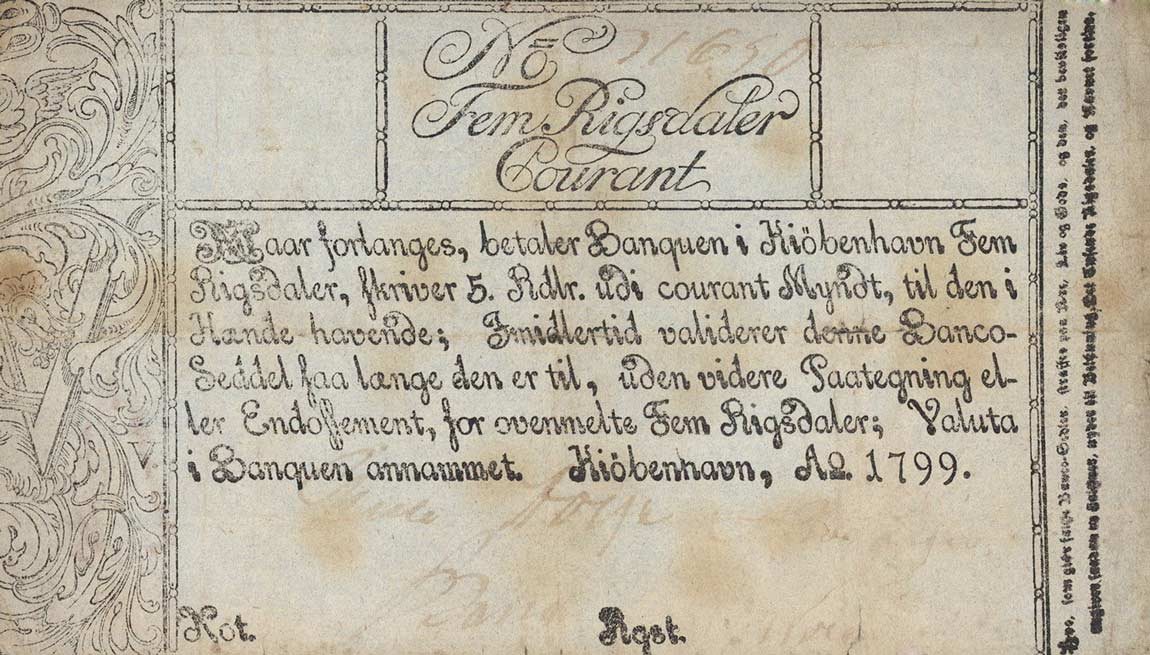 No 21690
Fem Rigsdaler
Courant
Naar forlanges, betaler Banquen i Kiöbenhavn Fem
Rigsdaler, skriver 5. Rdlr. udi courant Myndt, til den i
Hænde havende; Imidlertid validerer denne Banco-
Seddel saa længe den er til, uden videre Paategning el-
ler Endossement, for ovenmelte Fem Rigsdaler; Valuta
i Banquen annammet. Kiöbenhavn, Ao. 1799.
Not. Rgst.
som giør falske Banco-Sedler, straffes paa Ære, Liv og Gods, og den, der beviisligen
angiver saadan en Falskner, nyder til Belønning Et Tusinde Rigsdaler, og Navnet forties.